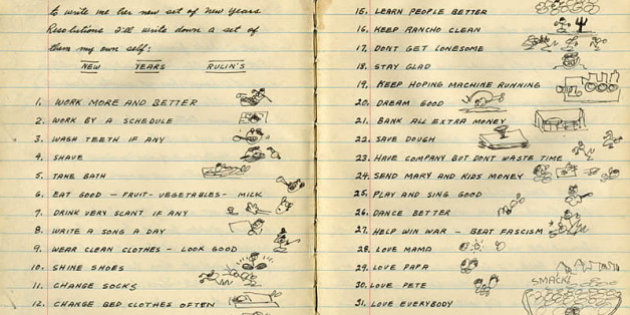 to write me her new set of New Years
Resolutions I'll write down a set of
them my own self:
NEW YEARS RULIN'S
1. WORK MORE AND BETTER
2. WORK BY A SCHEDULE
3. WASH TEETH IF ANY
4. SHAVE
5. TAKE BATH
6. EAT GOOD — FRUIT - VEGETABLES - MILK
7. DRINK VERY SCANT IF ANY
8. WRITE A SONG A DAY
9. WEAR CLEAN CLOTHES - LOOK GOOD
10. SHINE SHOES
11. CHANGE SOCKS
12. CHANGE BED CLOTHES OFTEN
15. LEARN PEOPLE BETTER
16. KEEP RANCHO CLEAN
17. DONT GET LONESOME
18. STAY GLAD
19. KEEP HOPING MACHINE RUNNING
20. DREAM GOOD
21. BANK ALL EXTRA MONEY
22. SAVE DOUGH
23. HAVE COMPANY BUT DONT WASTE TIME
24. SEND MARY AND KIDS MONEY
25. PLAY AND SING GOOD
26. DANCE BETTER
27. HELP WIN WAR — BEAT FASCISM
28. LOVE MAMA
29. LOVE PAPA
30. LOVE PETE
31. LOVE EVERYBODY
SMACK!